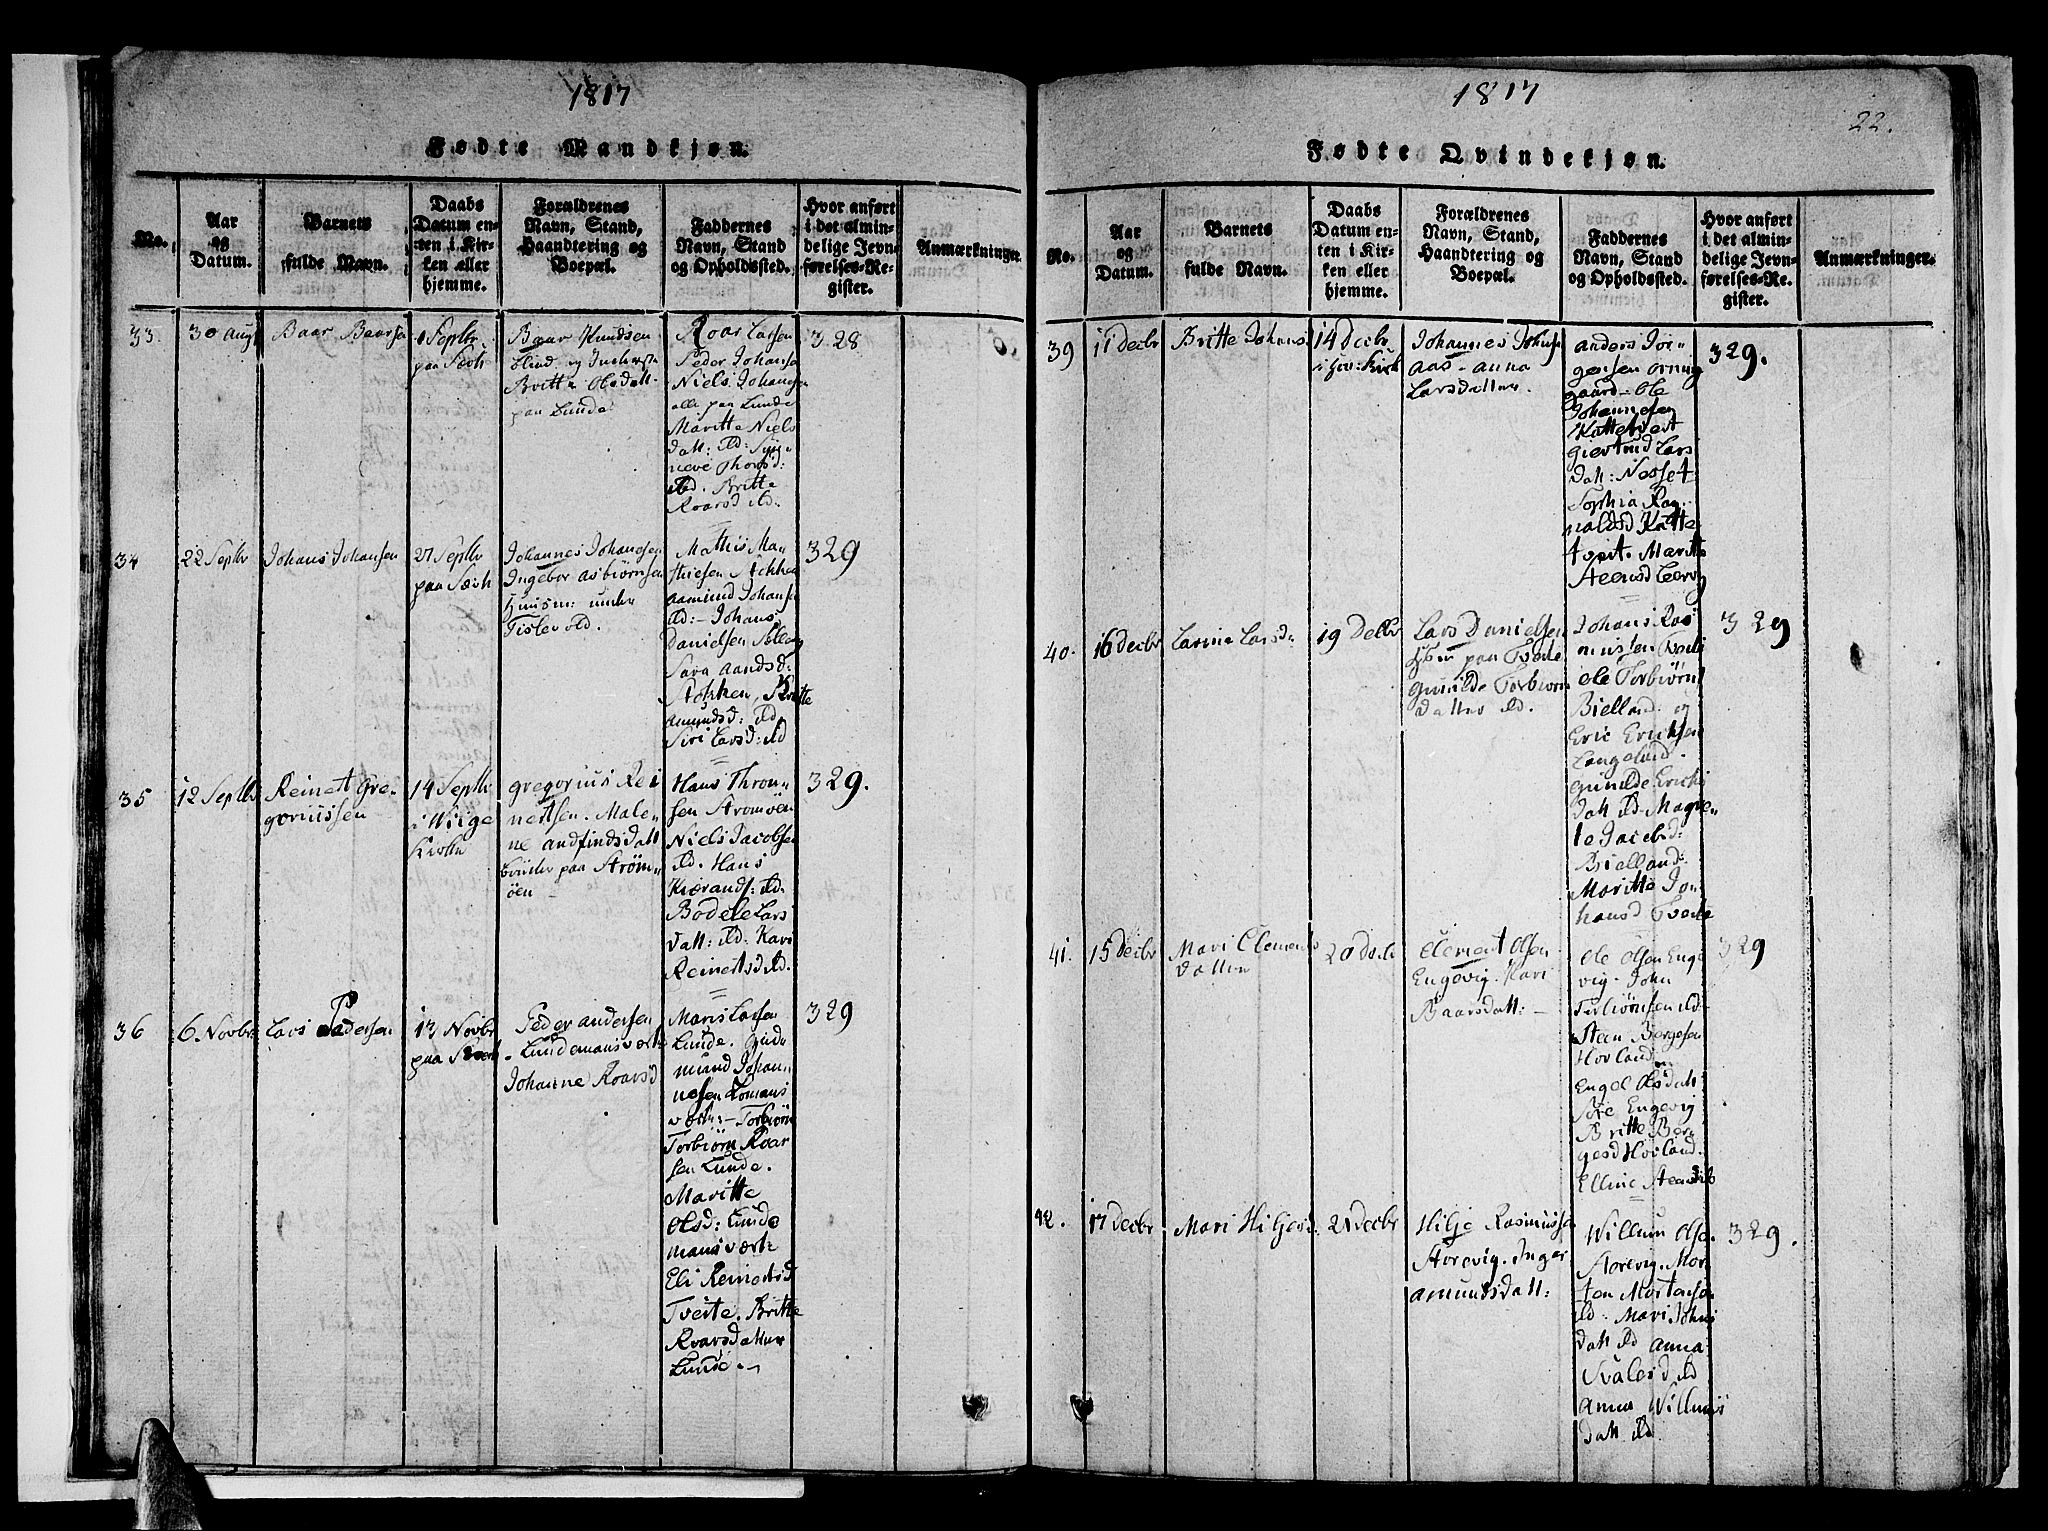 1817
Fødte Mandkjøn.
No.
Aar
og
Datum.
Barnets
fulde Navn.
Daabs
Datum en-
ten i Kir-
ken eller
hjemme.
Forældrenes
Navn, Stand,
Haandtering og
Boepæl.
Faddernes
Navn, Stand
og Opholdssted.
Hvor anført
i det almin-
delige Jevn-
førelses-Re-
gister.
Anmærkninger.
33.
30 Augs
Baar Baarsen
1 Septbr
paa
Baar Knudsen
blind og
Britte Olsdatt.
paa Lunde
Roar Larsen
Peder Johansen
Niels Johansen
alle paa Lunde
Maritte Niels
datt: ild: Syg-
neve Thorsd:
ild. Britte
Roarsd ild:
328
34
22 Septbr
Johans Johansen
27 Septbr
paa
Johannes Johansen
Ingebor Asbiørnsen
Huusm: under
Tislevold.
Mathis Ma-
thiesen Stokken
Aamund Johansen
ild:- Johans
Danielsen
Sara Aandsd:
Stokken, Britte
Amundsd: ild.
Siri Larsd: ild
329
35
12 Septbr
Reinert Gre-
goriussen
14 Septbr
i
Kirke
Gregorius Rei
nertsen. Male-
ne Andfindsdatt
paa Strøm-
øen-
Hans Thron-
sen Strømøen
Niels Jacobsen
ild. Hans
Kierands: ild.
Bodele Lars
datt: ild: Kari
Reinertsd ild.
329.
36
6. Novbr
Lars Pedersen
13 Novbr
paa
Peder Andersen
Lundemansvært
Johanne Roarsd
Maris Larsen
Lunde.
mund Johan-
nesen
vert:- Torbiørn
Torbiørn Roar
sen Lunde.
Maritte
Olsd: Lunde
mansvært:
Eli Reinertsd
Tveite. Britte
Roarsdatter
Lunde.-
329
1817
22.
Fødte Qvindekjøn.
No.
Aar
og
Datum.
Barnets
fulde Navn.
Daabs
Datum en-
ten i Kir-
ken eller
hjemme.
Forældrenes
Navn, Stand,
Haandtering og
Boepæl.
Faddernes
Navn, Stand
og Opholdssted.
Hvor anført
i det almin-
delige Jevn-
førelses-Re-
gister.
Anmærkninger.
39
11 Decbr
Britte Johans
14 Decbr
i
Johannes Johns
Aas - Anna
Larsdatter.
Anders Jør-
gensen
gaard - Ole
Johannesen
Kattetvert
Giertrud Lars
datt: Nesset
Sophia Rag-
naldsd Katte
tvert. Maritte
Steensd
329.
40.
16 Decbr
Larine Larsd:
19 Decbr
Lars Danielsen
paa Tveite
Gunilde Torbiørn
datter ild.
Johans Ras
mussen Tveite
Ole Torbiørns
Bielland. og
Eric Erichsen
Langeland.
Gunilde Erichs
datt ild. Magre-
te Jacobsd:
Bielland:
Maritte Jo-
hansd Tveite
329
41.
15 Decbr
Mari Clements
datter
20 ds
Clement Olsen
Engevig. Kari
Baarsdatt: -
Ole Olsen Enge
vig. John
Torbiørnsen ild-
Steen Børgesen
Hovland
Engel Olsdatt
Engevig
Britte Bør-
gesd Hovland.
Elline Steensd
329
42.
17 Decbr
Mari Hiljesd.
21 Decbr
Hilje Rasmussen
Storevig. Inger
Amundsdatt:
Willum Ols.
Storevig. Mor
ten Mortensen
ild. Mari Johns
datt ild Anna
Svalesd ild
Anna Willums
datt ild
329.